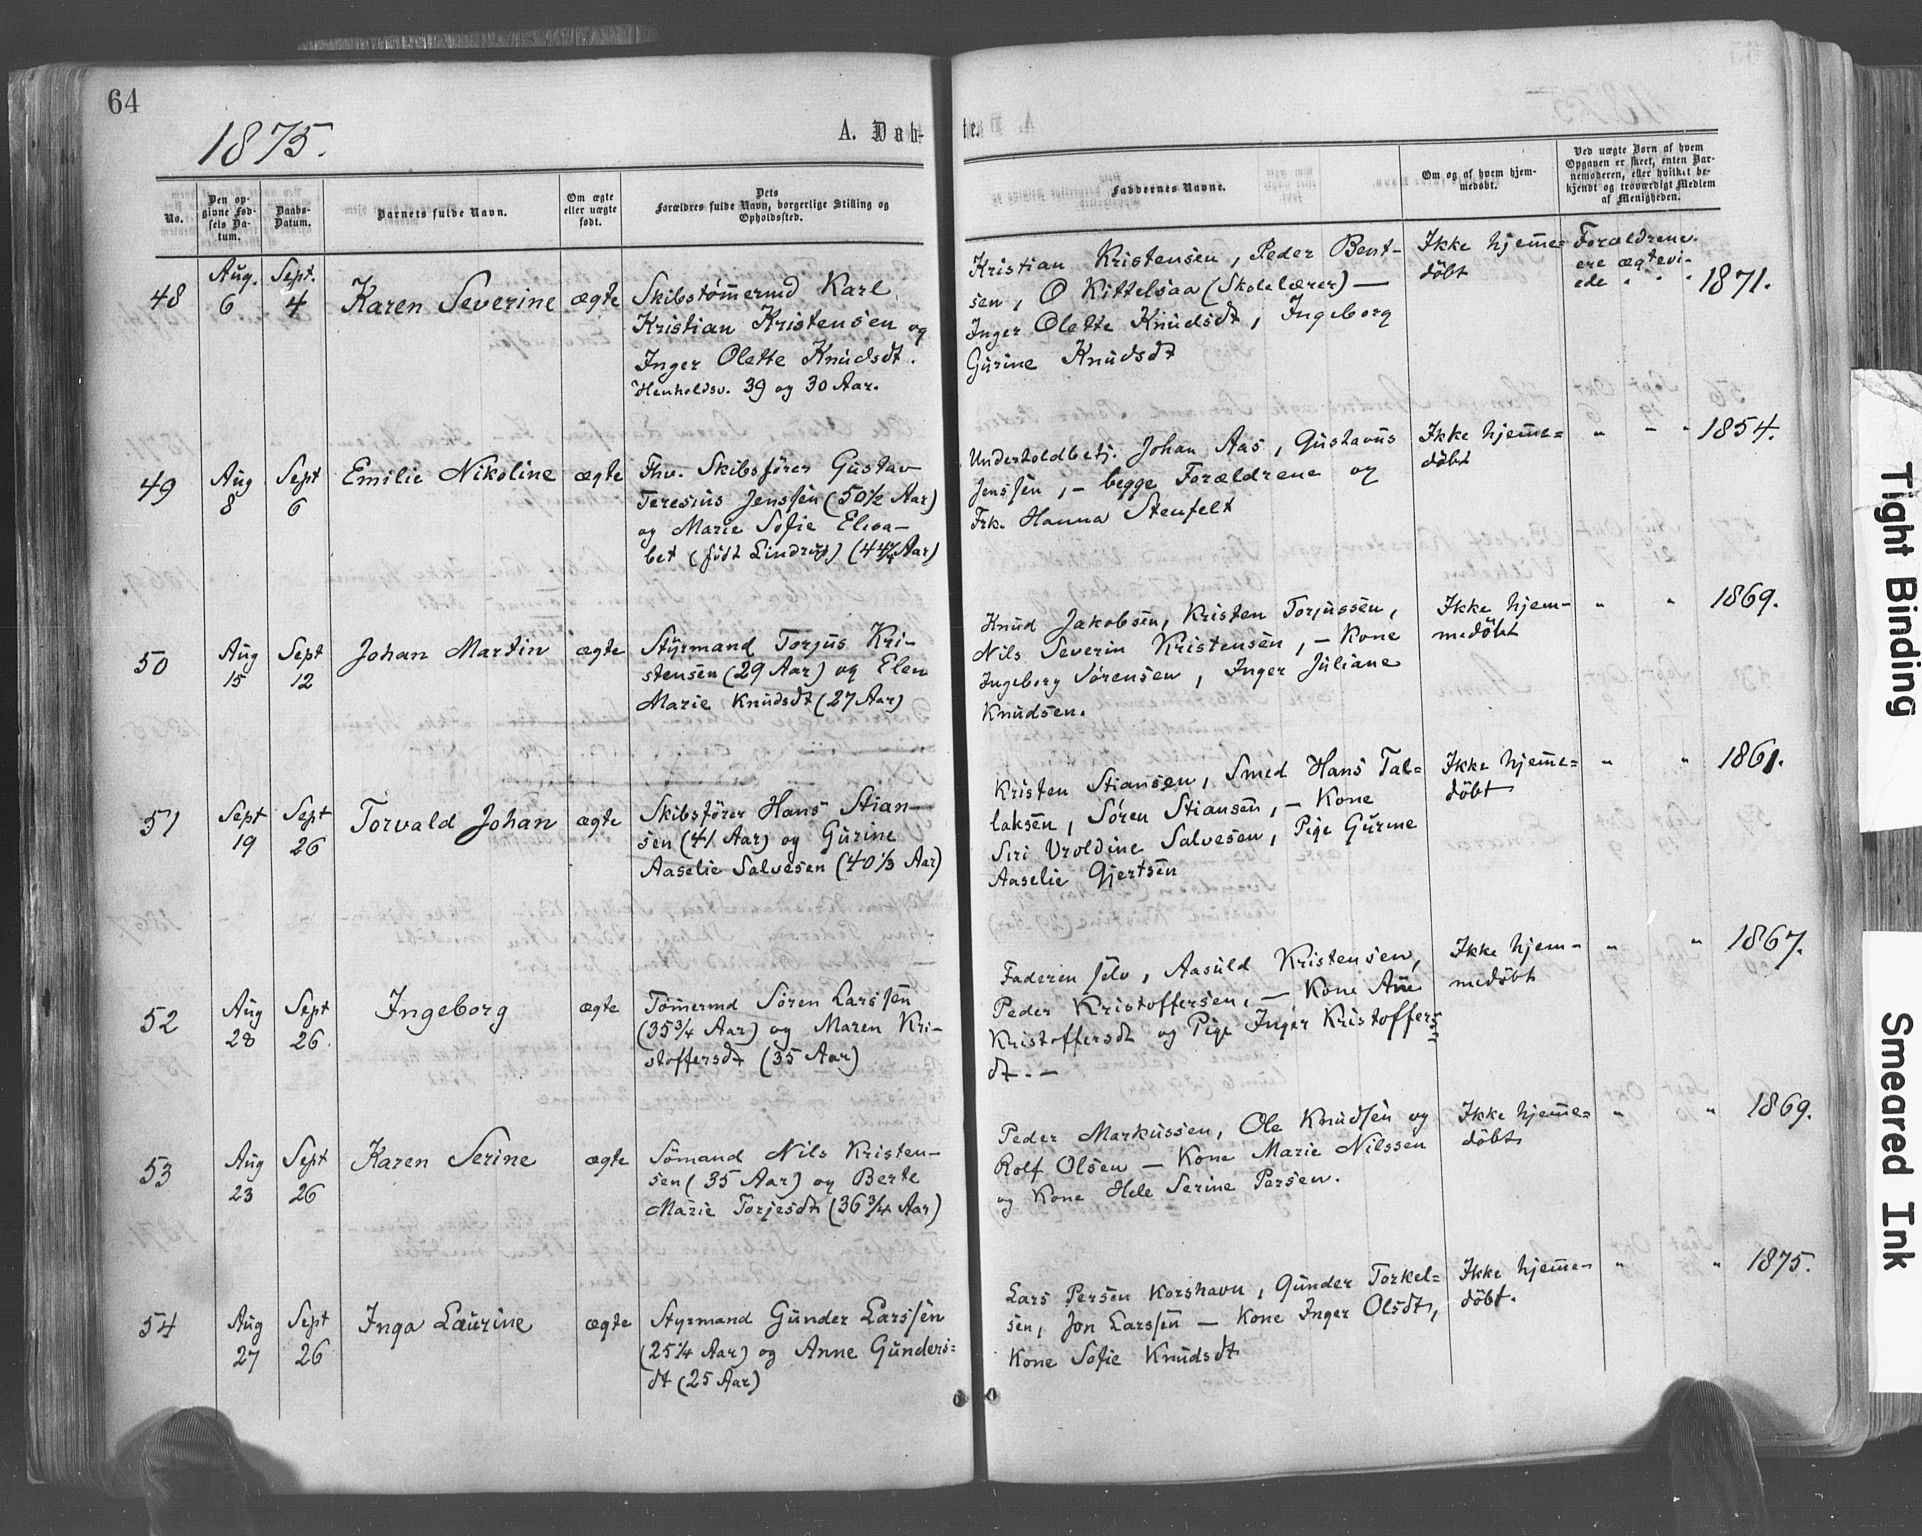 64
1875.
A. Døb-
te.
No.
Den op-
givne Fød-
sels Da-
tum.
Daabs-
Datum.
Barnets fulde Navn.
Om ægte
eller uægte
født.
Dets
Forældres fulde Navn, borgerlige Stilling og
Opholdssted.
Faddernes Navne.
Om og af hvem hjem-
medøbt.
Ved uægte Børn af hvem
Opgaven er skeet, enten Bar-
nemoderen, eller hvilket be-
kjendt og troværdigt Medlem
af Menigheden.
48
Aug.
6
Sept.
4
Karen Severine
ægte
Skibstømermd Karl
Kristian Kristensen og
Inger Olette Knudsdt.
Henholdsv. 39 og 30 Aar.
Kristian Kristensen, Peder Bent-
sen, O Kittelsaa (Skolelærer) —
Inger Olette Knudsdt, Ingeborg
Gurine Knudsdt
Ikke hjeme=
døbt
Forældrene
ere ægtevi-
ede " "
1871.
49
Aug
8
Sept
6
Emilie Nikoline
ægte
Fhv. Skibsfører Gustav
Teresius Jenssen (50½ Aar)
og Marie Sofie Elisa-
bet (født Lindrup) (44¼ Aar)
Underholdbetj. Johan Aas, Gustavus
Jenssen, - begge Forældrene og
Frk. Hanna Stenfelt
Ikke hjeme=
døbt
" - "
1854.
50
Aug
15
Sept
12
Johan Martin
ægte
Styrmand Torjus Kri-
stensen (29 Aar) og Elen
Marie Knudsdt (27 Aar)
Knud Jakobsen, Kristen Torjussen,
Nils Severin Kristensen, - Kone
Ingeborg Sørensen, Inger Juliane
Knudsen.
Ikke hjem-
medøbt
" "
1869.
51
Sept
19
Sept
26
Torvald Johan
ægte
Skibsfører Hans Stian-
sen (41 Aar) og Gurine
Aaselie Salvesen (40⅓ Aar)
Kristen Stiansen, Smed Hans Tal-
laksen, Søren Stiansen, - Kone
Siri Uroldine Salvesen, Pige Gurine
Aaselie Gjertsen
Ikke hjeme=
døbt
" "
1861.
52
Aug
28
Sept
26
Ingeborg
ægte
Tømermd Søren Larssen
(35¾ Aar) og Maren Kri-
stoffersdt (35 Aar)
Faderen selv, Aasuld Kristensen,
Peder Kristoffersen, - Kone Ane
Kristoffersdt og Pige Inger Kristoffers=
dt. -
Ikke hjem-
medøbt
" "
1867.
53
Aug
23
Sept
26
Karen Serine
ægte
Sømand Nils Kristen-
sen (35 Aar) og Berte
Marie Torjesdt (36¾ Aar)
Peder Markussen, Ole Knudsen og
Rolf Olsen - Kone Marie Nilssen
og Kone Hele Serine Persen.
Ikke hjeme=
døbt
" "
1869.
54
Aug
27
Sept
26
Inga Laurine
ægte
Styrmand Gunder Larssen
(25¼ Aar) og Anne Gunders=
dt (25 Aar)
Lars Persen Korshavn, Gunder Torkel=
sen, Jon Larssen - Kone Inger Olsdt,
Kone Sofie Knudsdt
Ikke hjeme-
døbt.
" "
1875.
Tight Binding
Smeared Ink